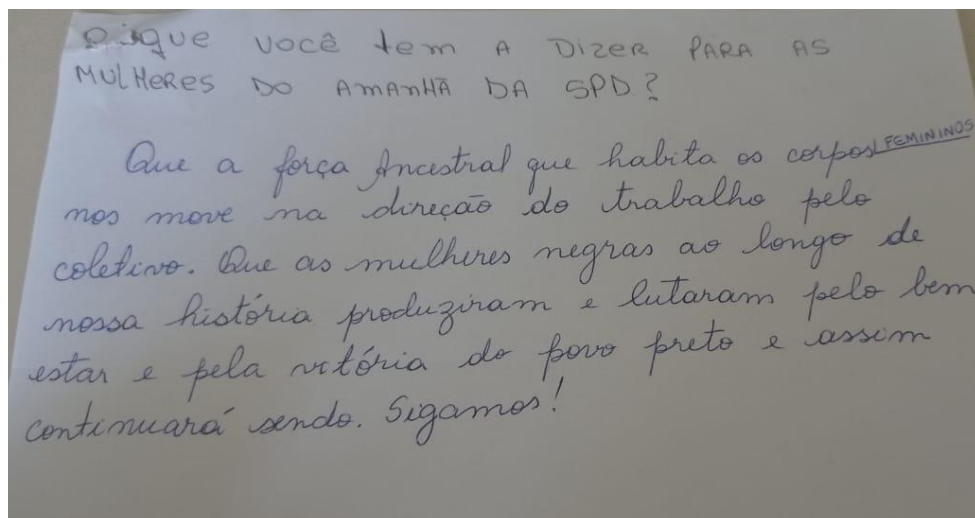 O que você tem A Dizer PARA AS
MULHeRes DO AmAnHÃ DA SPD?
Que a força Ancestral que habita os corpos FEMININOS
nos move na direção do trabalho pelo
coletivo. Que as mulheres negras ao longo de
nossa história produziram e lutaram pelo bem
estar e pela vitória do povo preto e assim
continuará sendo. Sigamos!